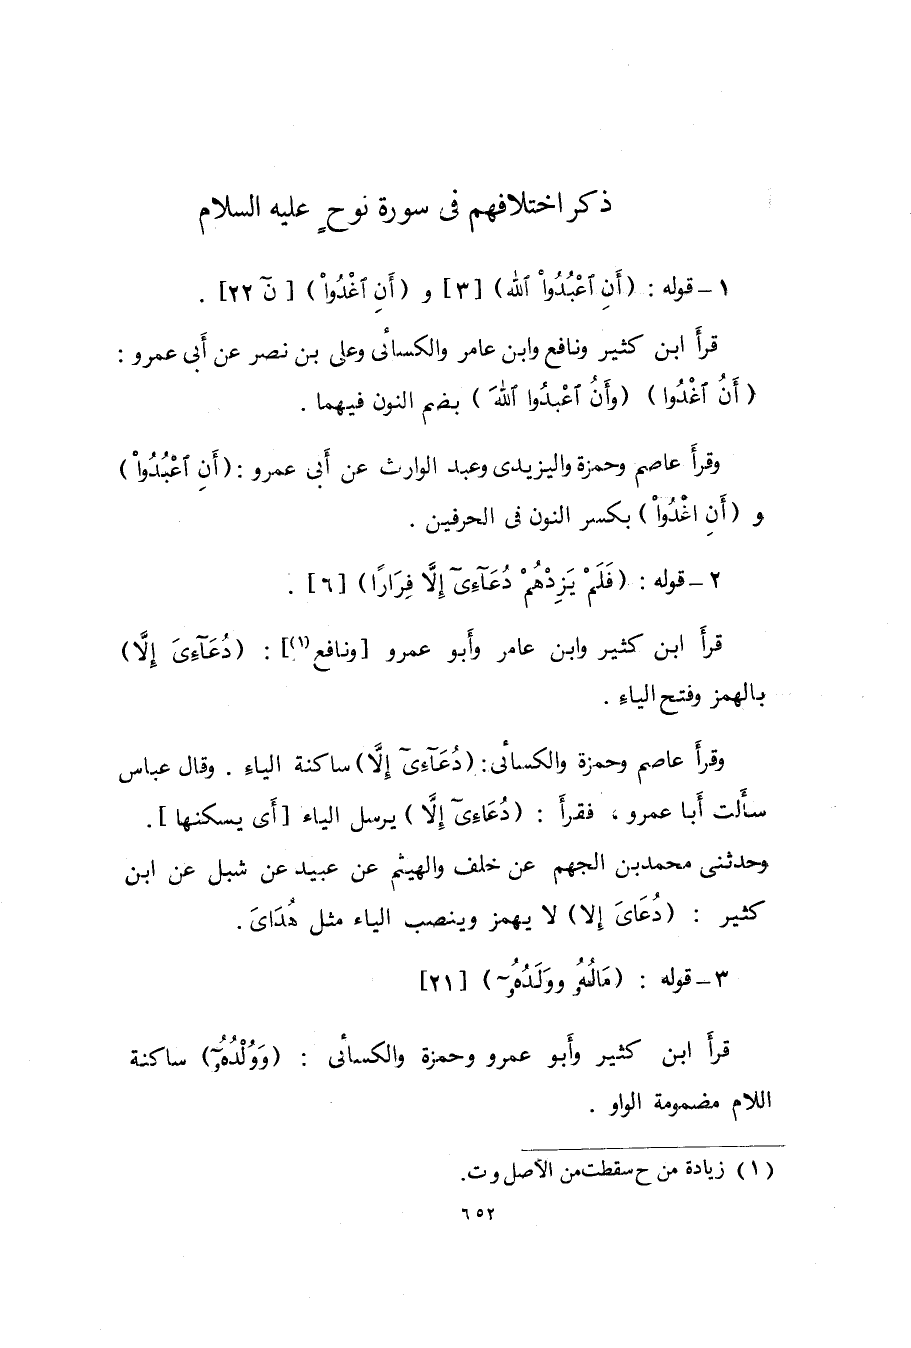 ذكر اختلافهم فى سورة نوحٍ عليه السلام
١ – قوله : (أَنِ ٱعْبُدُواْ ٱللّٰه) [٣] و (أَنِ ٱغْدُواْ) [ نٓ ٢٢] .
قرأ ابن كثير ونافع وابن عامر والكسائى وعلى بن نصر عن أَبى عمرو :
(أَنُ ٱغْدُوا) (وأَنُ ٱعْبدُوا ٱللّٰهَ) بضم النون فيهما .
وقرأَ عاصم وحمزة واليزيدى وعبد الوارث عن أَبى عمرو : (أَنِ ٱعْبُدُواْ)
و (أَنِ اغْدُواْ) بكسر النون فى الحرفين .
٢ – قوله : (فَلَمْ يَزِدْهُمْ دُعَآءِىٓ إِلَّا فِرَارًا) [٦] .
قرأَ ابن كثير وابن عامر وأَبو عمرو [ونافع(١)] : (دُعَآءِىَ إِلَّا)
بالهمز وفتح الياء .
وقرأَ عاصم وحمزة والكسائى : (دُعَآءِىٓ إِلَّا) ساكنة الياء . وقال عباس
سأَلت أَبا عمرو ، فقرأَ : (دُعَاءِىٓ إِلَّا) يرسل الياء [أَى يسكنها] .
وحدثنى محمد بن الجهم عن خلف والهيثم عن عبيد عن شبل عن ابن
كثير : (دُعَاىَ إلا) لا يهمز وينصب الياء مثل هُدَاىَ .
٣ – قوله : (مَالُهُۥ ووَلَدُهُۥٓ) [٢١]
قرأَ ابن كثير وأَبو عمرو وحمزة والكسائى : (وَوُلْدُهُۥٓ) ساكنة
اللام مضمومة الواو .
(١) زيادة من ح سقطت من الأصل و ت.
٦٥٢